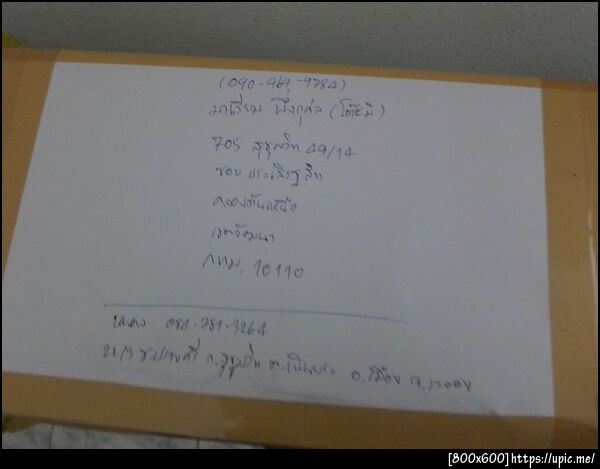 (090-969-9784)
มาเรียม
705 สุขุมวิท 49/14
ซอย ประเสริฐสิทธิ์
คลองตันเหนือ
เขตวัฒนา
กทม. 10110
081-781-3264
ถ.สุขุมวิท อ.เมือง จ.ระยอง
[800x600]https://upic.me/